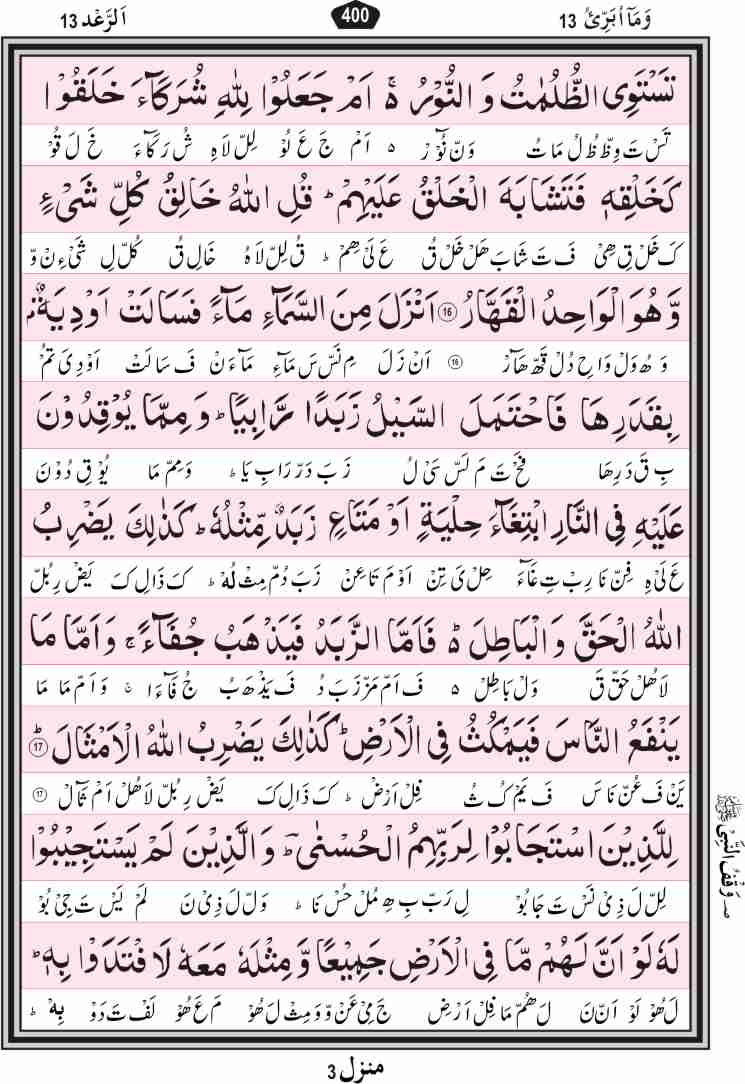 وَمَآ اُبَرِّئُ 13
400
اَلرَّعْد 13
تَسْتَوِى الظُّلُمٰتُ وَ النُّوْرُ ۵ۚ اَمْ جَعَلُوْا لِلّٰهِ شُرَكَآءَ خَلَقُوْا
تَسْ تَ وِظّ ظُ لُ مَا تُ وَنّ نُوْ رْ ۵ اَمْ جَ عَ لُوْ لِلّ لَا هِ شُ رَ كَآءَ خَ لَ قُوْ
كَخَلْقِهٖ فَتَشَابَهَ الْخَلْقُ عَلَيْهِمْ ؕ قُلِ اللّٰهُ خَالِقُ كُلِّ شَىْءٍ
كَ خَلْ قِ هِىْ فَ تَ شَابَ هَلْ خَلْ قُ عَ لَىْ هِمْ ؕ قُ لِلّ لَا هُ خَالِ قُ كُلّ لِ شَىْ ءِنْ وّ
وَّهُوَ الْوَاحِدُ الْقَهَّارُ ⑯ اَنْزَلَ مِنَ السَّمَآءِ مَآءً فَسَالَتْ اَوْدِيَةٌۢ
وَ هُ وَلْ وَاحِ دُ لْ قَهّ هَارْ ⑯ اَنْ زَ لَ مِ نَسّ سَ مَآءِ مَآءَنْ فَ سَا لَتْ اَوْ دِىَ تُمْ
بِقَدَرِهَا فَاحْتَمَلَ السَّيْلُ زَبَدًا رَّابِيًا ؕ وَ مِمَّا يُوْقِدُوْنَ
بِ قَ دَ رِهَا فَحْ تَ مَ لَسّ سَىْ لُ زَ بَ دَرّ رَابِ يَا ؕ وَ مِمّ مَا يُوْ قِ دُوْ نَ
عَلَيْهِ فِى النَّارِ ابْتِغَآءَ حِلْيَةٍ اَوْ مَتَاعٍ زَبَدٌ مِّثْلُهٗ ؕ كَذٰلِكَ يَضْرِبُ
عَ لَىْ هِ فِنّ نَا رِبْ تِ غَآءَ حِلْ ىَ تِنْ اَوْ مَ تَا عِنْ زَ بَ دُمّ مِثْ لُهْ ؕ كَ ذَالِ كَ يَضْ رِ بُلّ
اللّٰهُ الْحَقَّ وَ الْبَاطِلَ ۵ؕ فَاَمَّا الزَّبَدُ فَيَذْهَبُ جُفَآءً ۚ وَ اَمَّا مَا
لَا هُلْ حَقّ قَ وَلْ بَا طِلْ ۵ فَ اَمّ مَزّ زَ بَ دُ فَ يَذْ هَ بُ جُ فَآءَا ۚ وَ اَمّ مَا مَا
يَنْفَعُ النَّاسَ فَيَمْكُثُ فِى الْاَرْضِ ؕ كَذٰلِكَ يَضْرِبُ اللّٰهُ الْاَمْثَالَ ؕ ⑰
يَنْ فَ عُنّ نَا سَ فَ يَمْ كُ ثُ فِلْ اَرْضْ ؕ كَ ذَالِ كَ يَضْ رِ بُلّ لَا هُلْ اَمْ ثَالْ ⑰
لِلَّذِيْنَ اسْتَجَابُوْا لِرَبِّهِمُ الْحُسْنٰى ؔؕ وَ الَّذِيْنَ لَمْ يَسْتَجِيْبُوْا
لِلّ لَ ذِىْ نَسْ تَ جَا بُوْ لِ رَبّ بِ هِ مُلْ حُسْ نَا ؕ وَلّ لَ ذِىْ نَ لَمْ يَسْ تَ جِىْ بُوْ
لَهٗ لَوْ اَنَّ لَهُمْ مَّا فِى الْاَرْضِ جَمِيْعًا وَّ مِثْلَهٗ مَعَهٗ لَا فْتَدَوْا بِهٖ ؕ
لَ هُوْ لَوْ اَنّ نَ لَ هُمّ مَا فِلْ اَرْضِ جَ مِىْ عَنْ وّ وَ مِثْ لَ هُوْ مَ عَ هُوْ لَفْ تَ دَوْ بِهْ ؕ
وَقْفُ النَّبِى
منزل 3